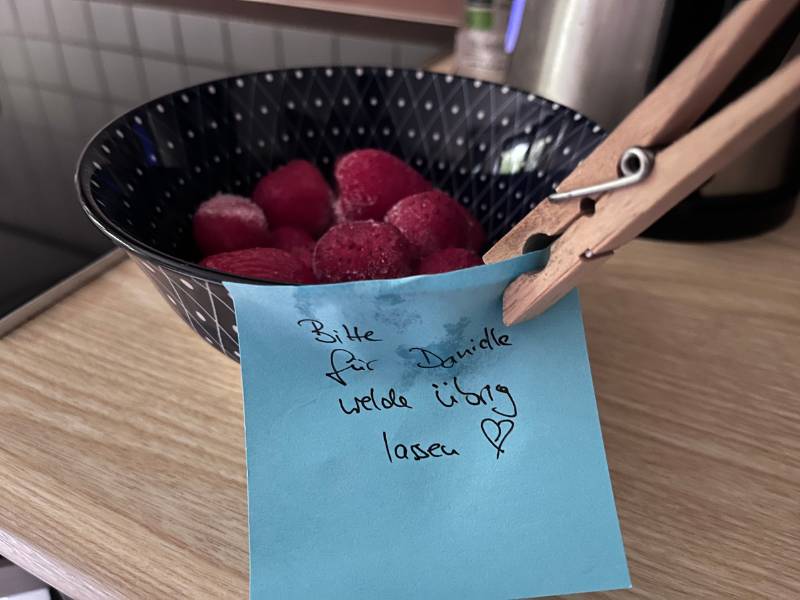 Bitte
für Danielle
welche übrig
lassen ♡